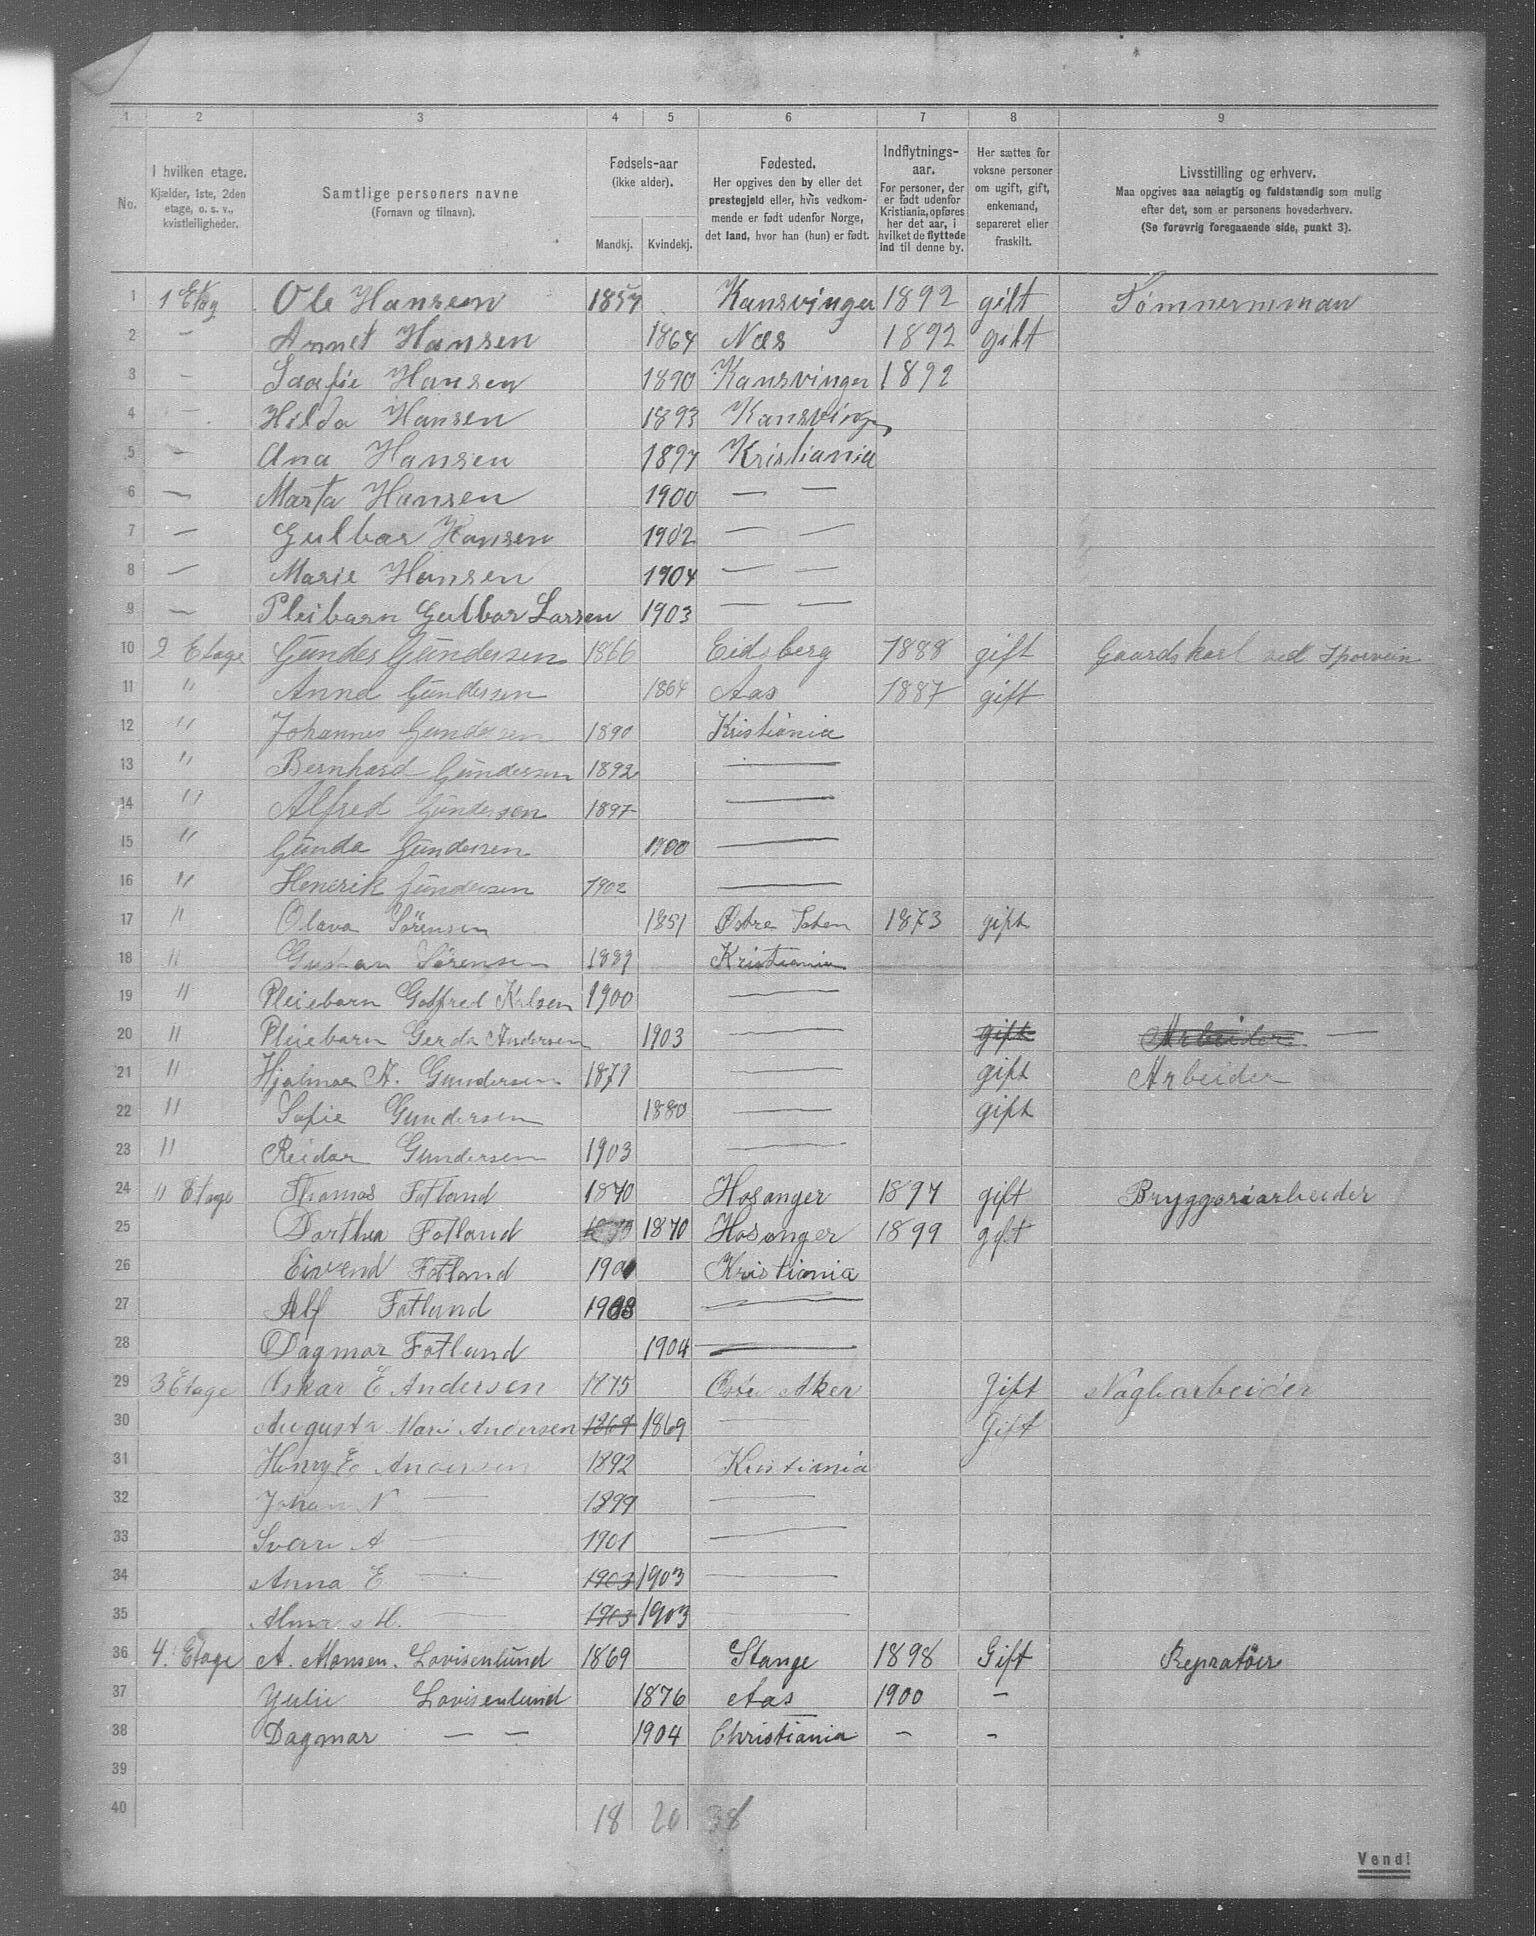 1 2 3 4 5 6 7 8 9
No.
I hvilken etage.
Kjælder, 1ste, 2den
etage, o. s. v.,
kvistleiligheder.
Samtlige personers navne
(Fornavn og tilnavn).
Fødsels-aar
(ikke alder).
Mandkj. Kvindekj.
Fødested.
Her opgives den by eller det
prestegjeld eller, hvis vedkom-
mende er født udenfor Norge,
det land, hvor han (hun) er født.
Indflytnings-
aar.
For personer, der
er født udenfor
Kristiania, opføres
her det aar, i
hvilket de flyttede
ind til denne by.
Her sættes for
voksne personer
om ugift, gift,
enkemand,
separeret eller
fraskilt.
Livsstilling og erhverv.
Maa opgives saa nøiagtig og fuldstændig som mulig
efter det, som er personens hovederhverv.
(Se forøvrig foregaaende side, punkt 3).
1 1 Etag Ole Hansen 1857 Kansvinger 1892 gift Tømnermman
2 — Annet Hansen 1864 Næs 1892 gift
3 — Saafie Hansen 1890 Kansvinger 1892
4 — Hilda Hansen 1893 Kansvinger
5 — Ana Hansen 1897 Kristiania
6 — Marta Hansen 1900 — —
7 — Gulbar Hansen 1902 — —
8 — Marie Hansen 1904 — —
9 — Pleibarn Gulbar Larsen 1903 — —
10 2 Etage Gunder Gundersen 1866 Eidsberg 1888 gift Gaardskarl ved Sporvein
11 " Anna Gundersen 1864 Aas 1887 gift
12 " Johannes Gundersen 1890 Kristiania
13 " Bernhard Gundersen 1892 —
14 " Alfred Gundersen 1897 —
15 " Gunda Gundersen 1900 —
16 " Henrik Gundersen 1902 —
17 " Olava Sørensen 1851 Østre Toten 1873 gift
18 " Gustav Sørensen 1889 Kristiania
19 " Pleiebarn Godfred Karlsen 1900 —
20 " Pleiebarn Gerda Andersen 1903 — gift Arbeider —
21 " Hjalmar A. Gundersen 1879 — gift Arbeider
22 " Sofie Gundersen 1880 — gift
23 " Reidar Gundersen 1903 —
24 " Etage Thomas Fotland 1870 Hosanger 1897 gift Bryggeriarbeider
25 Dorthea Fotland 1870 Hosanger 1899 gift
26 Eivend Fotland 1901 Kristiania
27 Alf Fotland 1903 —
28 Dagmar Fotland 1904 —
29 3 Etage Oskar E Andersen 1875 Østre Aker Gift Naglearbeider
30 Augusta Marie Andersen 1869 1869 — Gift
31 Henry E Andersen 1892 Kristiania
32 Johan N — 1899 —
33 Sverre A — 1901 —
34 Anna E — 1903 1903 —
35 Alma M. — 1903 1903 —
36 4. Etage A. Monsen. Lovisenlund 1869 Stange 1898 Gift Repratøer
37 Yulie Lovisenlund 1876 Aas 1900 —
38 Dagmar — — 1904 Christiania — —
39
40 18 20 38
Vend!